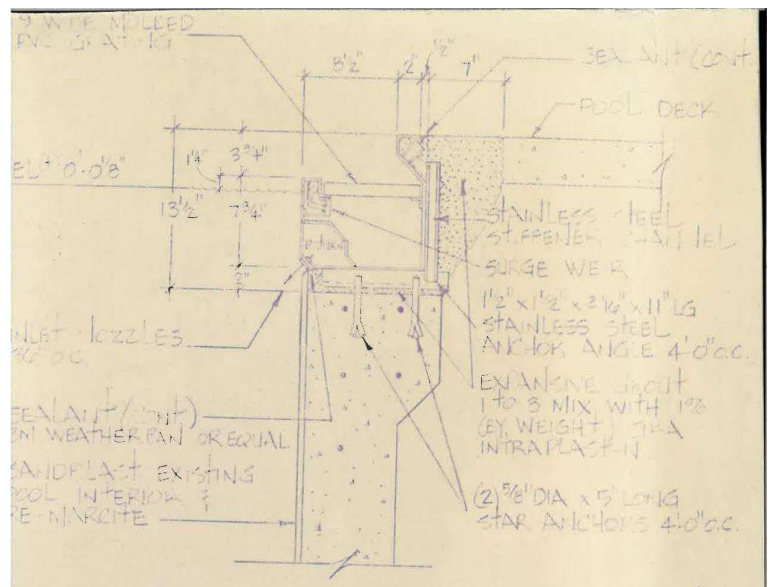 9" WIDE MOLDED
PVC GRATING
8½"
2"
½"
7"
SEALANT (CONT.
POOL DECK
EL 0'-0⅛"
1¼"
3¾"
13½"
7¾"
2"
STAINLESS STEEL
STIFFENER CHANNEL
SURGE WEIR
1½" x 1½" x 3/16" x 11" LG
STAINLESS STEEL
ANCHOR ANGLE 4'-0" O.C.
INLET NOZZLES
36" O.C.
EXPANSIVE GROUT
1 TO 3 MIX WITH 1%
(BY WEIGHT) SIKA
INTRAPLAST-N
SEALANT (CONT)
3M WEATHERBAN OR EQUAL
SANDBLAST EXISTING
POOL INTERIOR &
RE-MARCITE
(2) ⅝" DIA x 5" LONG
STAR ANCHORS 4'-0" O.C.